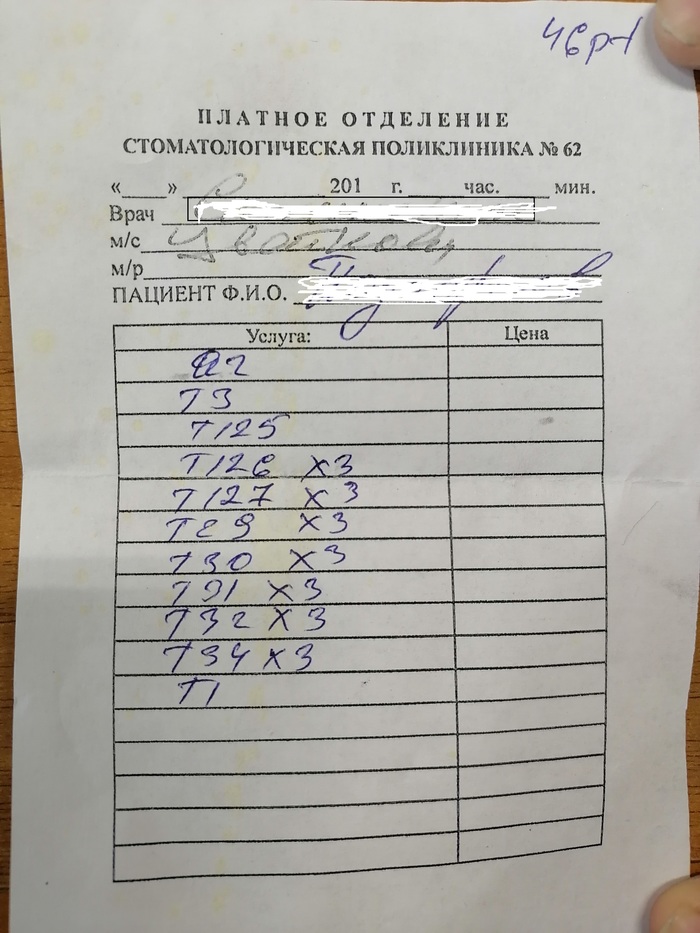 ПЛАТНОЕ ОТДЕЛЕНИЕ
СТОМАТОЛОГИЧЕСКАЯ ПОЛИКЛИНИКА № 62
«___» 201 г. час. мин.
Врач
м/с
м/р
ПАЦИЕНТ Ф.И.О.
Услуга: Цена
Т3
Т125
Т126 х3
Т127 х3
Т29 х3
Т30 х3
Т31 х3
Т32 х3
Т34 х3
Т1